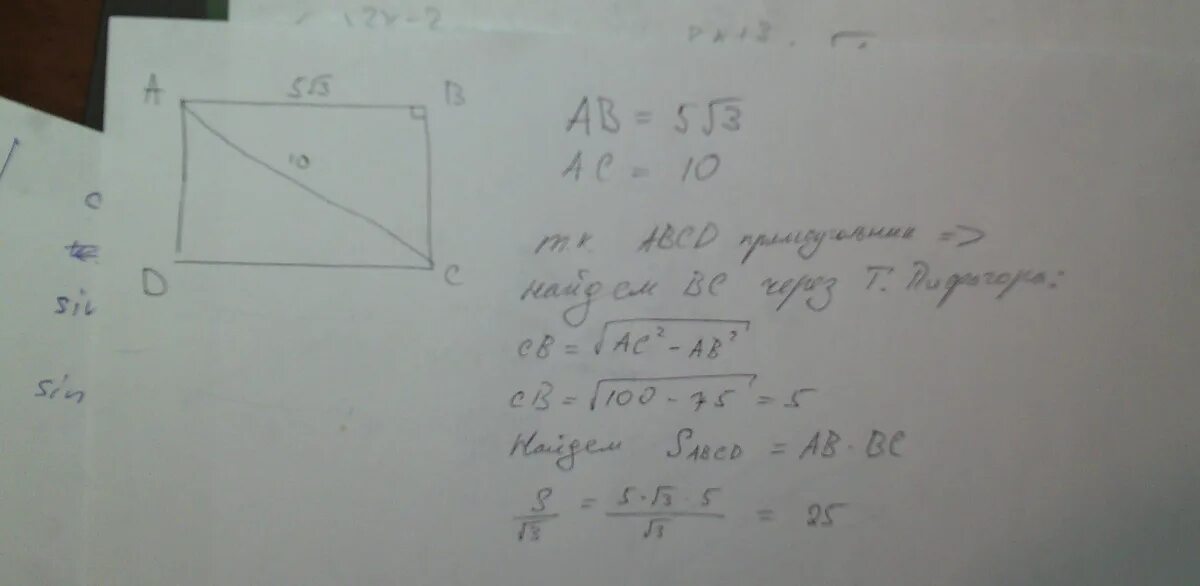 A 5√3 B
10
D C
AB = 5√3
AC = 10
т.к. ABCD прямоугольник =>
найдем BC через Т. Пифагора:
CB = √(AC² - AB²)
CB = √(100 - 75) = 5
Найдем S_ABCD = AB · BC
S/√3 = (5·√3·5)/√3 = 25
c
sin
sin